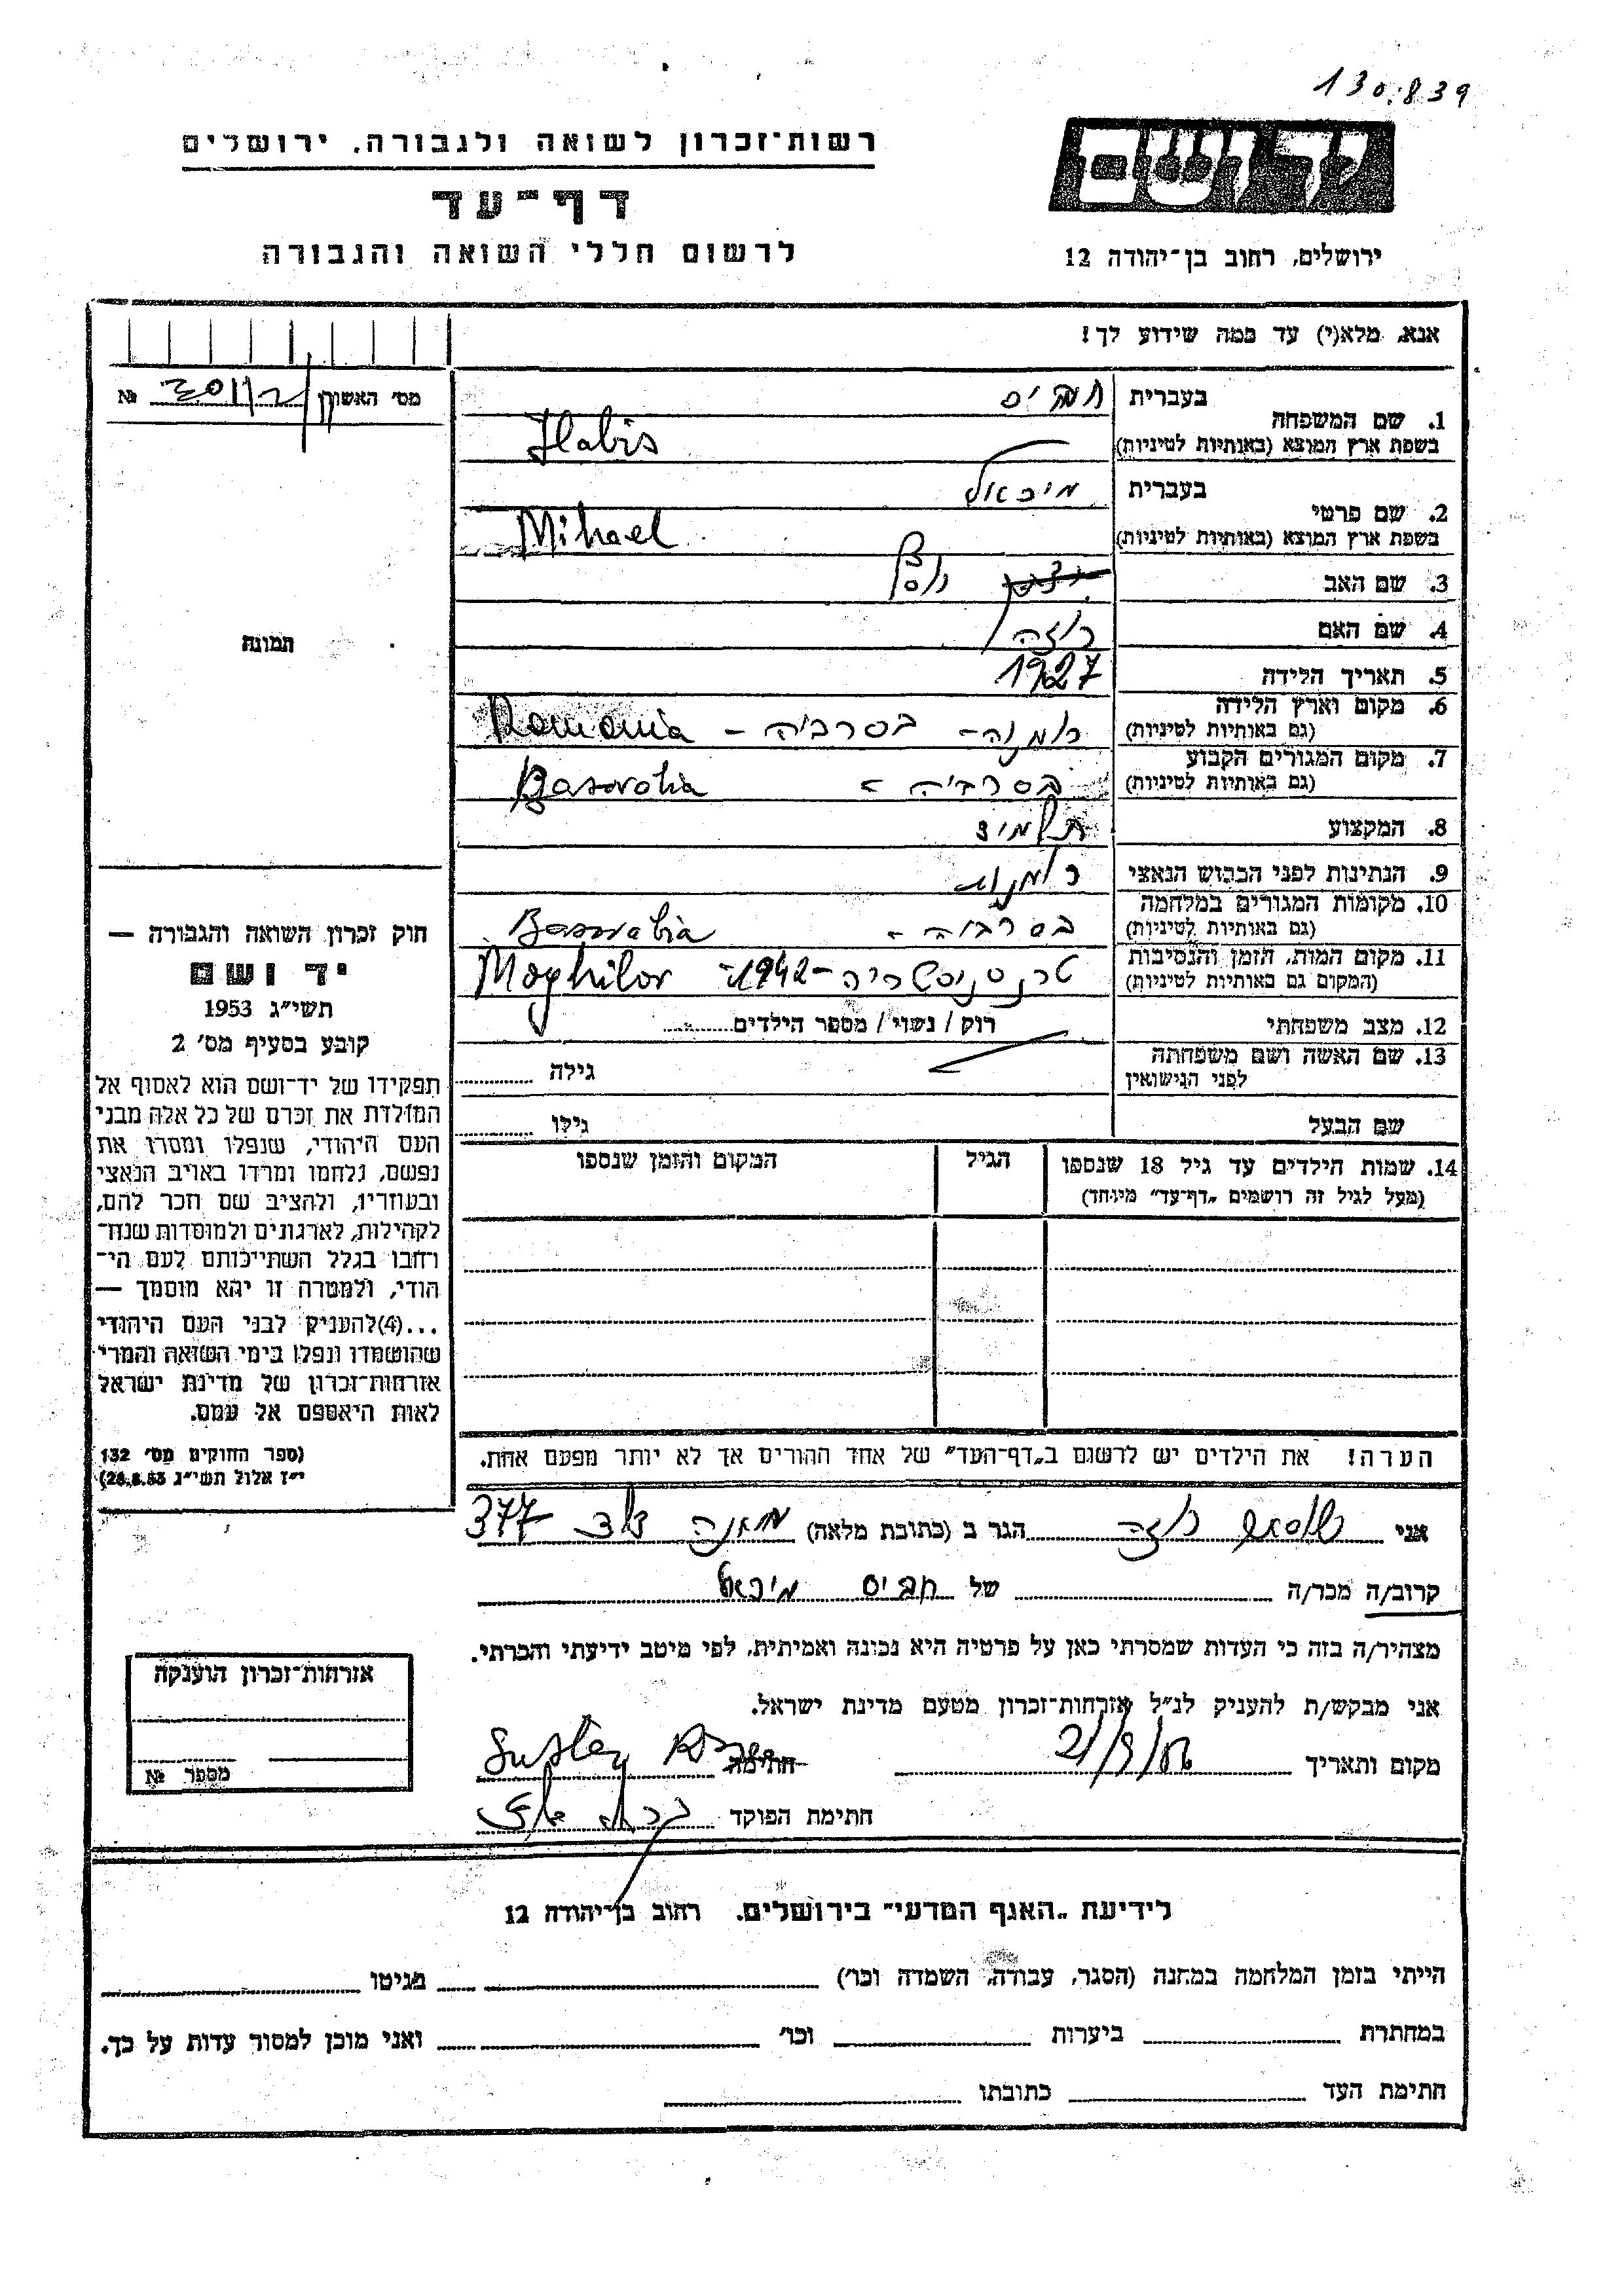 130.839
ידושם
רשות־זכרון לשואה ולגבורה, ירושלים
דף־עד
לרשום חללי השואה והגבורה
ירושלים, רחוב בן־יהודה 12
אנא, מלא(י) עד כמה שידוע לך!
מס׳ האשון №
1. שם המשפחה
בעברית
בשפת ארץ המוצא (באותיות לטיניות) Habis
2. שם פרטי
בעברית מיכאל
בשפת ארץ המוצא (באותיות לטיניות) Mihael
3. שם האב
4. שם האם רוזה
5. תאריך הלידה 1927
6. מקום וארץ הלידה
(גם באותיות לטיניות) רומניה - בסרביה - Romania
7. מקום המגורים הקבוע
(גם באותיות לטיניות) בסרביה -
8. המקצוע תלמיד
9. הנתינות לפני הכבוש הנאצי
10. מקומות המגורים במלחמה
(גם באותיות לטיניות) בסרביה - Bassrabia
11. מקום המות, הזמן והנסיבות
(המקום גם באותיות לטיניות) טרנסניסטריה - 1942 Moghilov
12. מצב משפחתי רווק / נשוי / מספר הילדים
13. שם האשה ושם משפחתה
לפני הנישואין גילה
שם הבעל גילו
14. שמות הילדים עד גיל 18 שנספו
(מעל לגיל זה רושמים „דף־עד״ מיוחד)
הגיל
המקום והזמן שנספו
תמונה
חוק זכרון השואה והגבורה —
יד ושם
תשי״ג 1953
קובע בסעיף מס׳ 2
תפקידו של יד־ושם הוא לאסוף אל
המולדת את זכרם של כל אלה מבני
העם היהודי, שנפלו ומסרו את
נפשם, נלחמו ומרדו באויב הנאצי
ובעוזריו, ולהציב שם וזכר להם,
לקהילות, לארגונים ולמוסדות שנח־
רבו בגלל השתייכותם לעם הי־
הודי, ולמטרה זו יהא מוסמך —
...(4) להעניק לבני העם היהודי
שהושמדו ונפלו בימי השואה והמרי
אזרחות־זכרון של מדינת ישראל
לאות היאספם אל עמם.
(ספר החוקים מס׳ 132
י״ז אלול תשי״ג 28.8.53)
הערה! את הילדים יש לרשום ב„דף־העד״ של אחד ההורים אך לא יותר מפעם אחת.
אני רוזה הגר ב (כתובת מלאה) 377
קרוב/ה מכר/ה של חביס מיכאל
מצהיר/ה בזה כי העדות שמסרתי כאן על פרטיה היא נכונה ואמיתית, לפי מיטב ידיעתי והכרתי.
אני מבקש/ת להעניק לנ״ל אזרחות־זכרון מטעם מדינת ישראל.
מקום ותאריך חתימה
חתימת הפוקד
אזרחות־זכרון הוענקה
מספר №
לידיעת „האגף המדעי״ בירושלים, רחוב בן־יהודה 12
הייתי בזמן המלחמה במחנה (הסגר, עבודה, השמדה וכו׳) בגיטו
במחתרת ביערות וכו׳ ואני מוכן למסור עדות על כך.
חתימת העד כתובתו